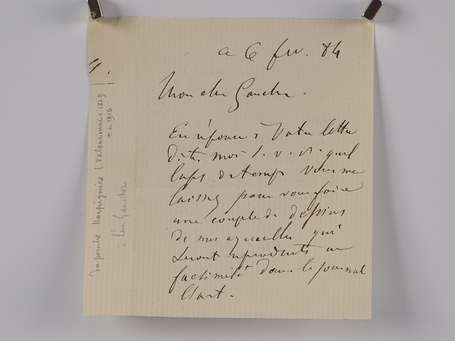 ce 6 fev. 84
Mon cher Gaucher.
En réponse à votre lettre
dites moi s. v. p. quel
laps de temps vous me
laissez pour vous faire
une couple de dessins
de mes aquarelles qui
seront reproduits en
facsimile dans le journal
l'art.
Harpignies (Valenciennes 1819